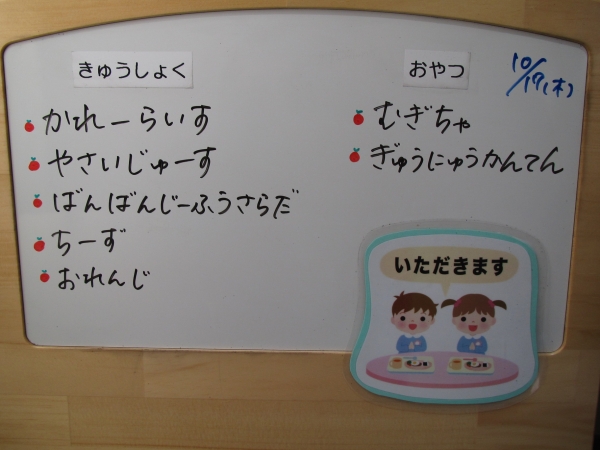 きゅうしょく
かれーらいす
やさいじゅーす
ばんばんじーふうさらだ
ちーず
おれんじ
おやつ
10/17(木)
むぎちゃ
ぎゅうにゅうかんてん
いただきます